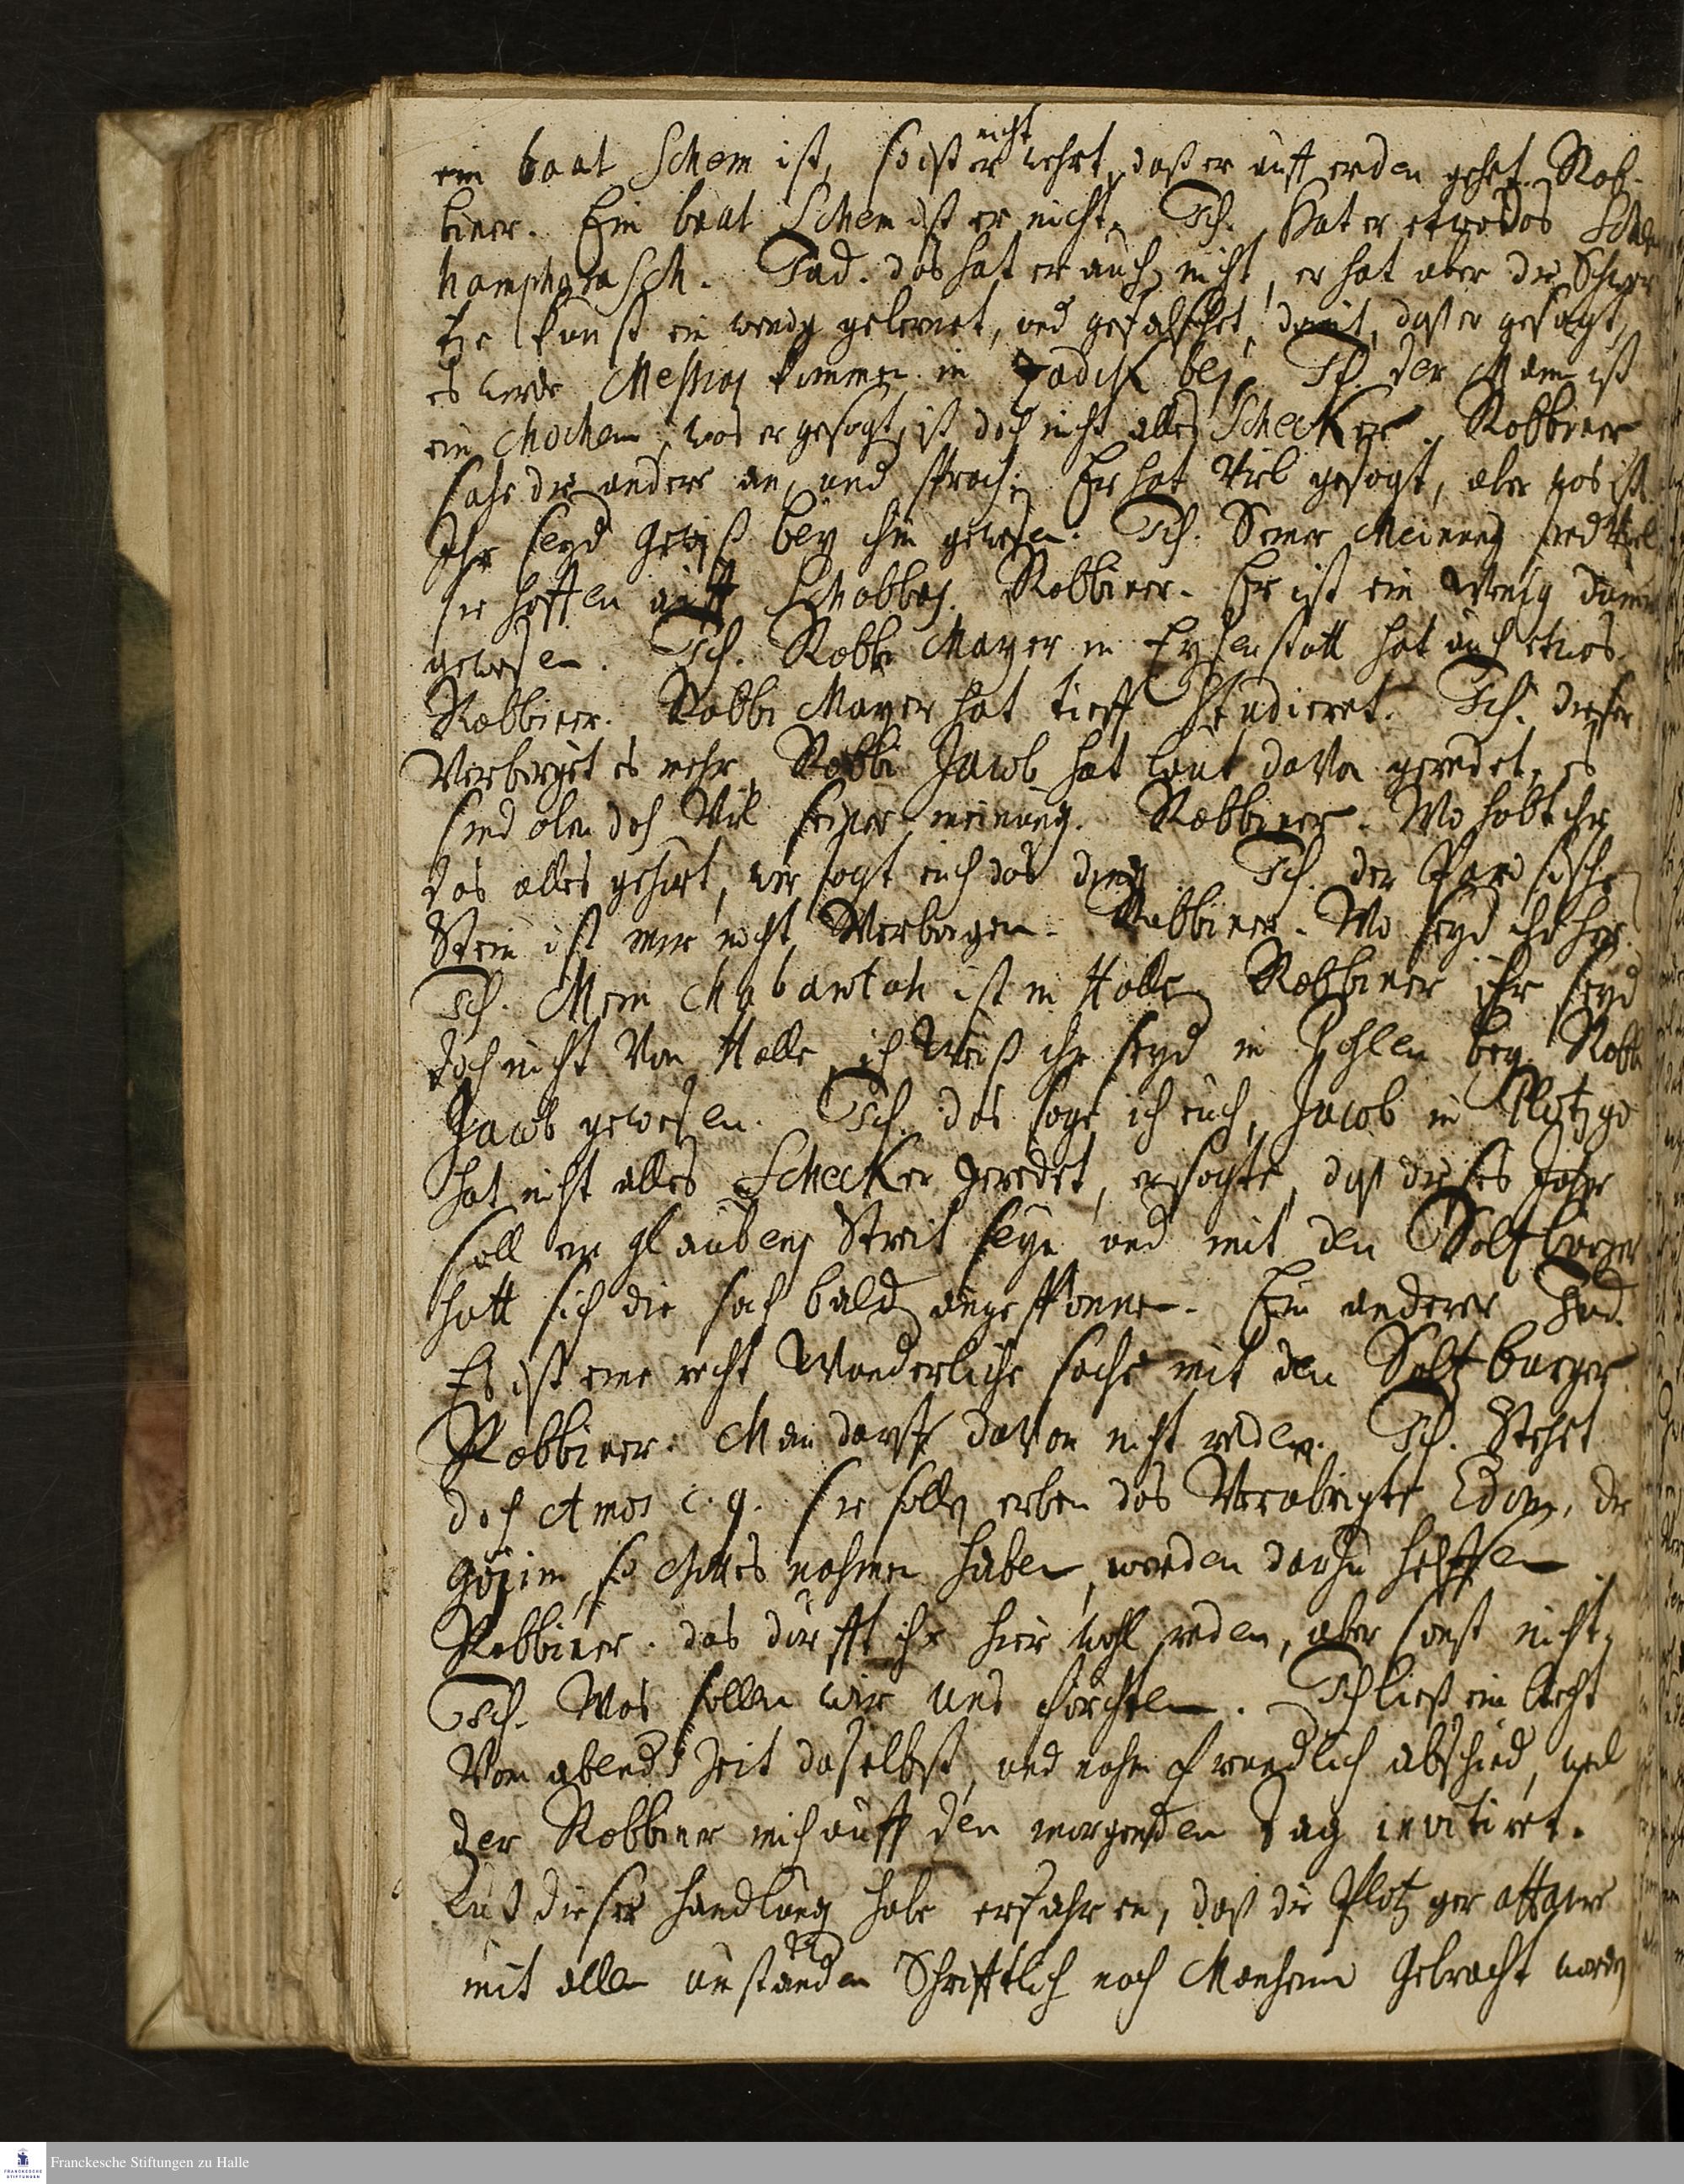 ein baal Schem ist, so ist er nicht wehrt, daß er auff erden gehet. Rab-
biner. Ein baal Schem ist er nicht. Ich. Hat er etwa das Schem
hamphorasch. Jud. das hat er auch nicht, er hat aber die Schwar
tze kunst ein wenig gelernet, und gefälschet damit, daß er gesagt,
es werde Messias kommen in Zadik bej. Ich. der Mann ist
ein Chochem, was er gesagt, ist doch nicht alles Schecker. Rabbiner
sahe die andere an, und sprach: Er hat Viel gesagt, aber was ist
Ihr seyd gewiß bey ihm gewesen. Ich. Seiner Meinung sind Viel
sie hoffen auff Schabbas. Rabbiner. Er ist ein Wenig dumm
gewesen. Ich. Rabbi Mayer in Eysenstatt hat auch etwas
Rabbiner. Rabbi Mayer hat tieff Studieret. Ich. dieser
Verbirget es mehr, Rabbi Jacob hat laut davon geredet, es
sind aber doch Viel seiner meinung. Rabbiner. Wo habt ihr
das alles gehört, wer sagt euch das ding. Ich. der
Stein ist mir nicht Verborgen. Rabbiner. Wo seyd ihr her
Ich. Mein ist in Halle Rabbiner ihr seyd
doch nicht Von Halle, ich Weiß ihr seyd in Pohlen bey Rabbi
Jacob gewesen. Ich. das sage ich euch, Jacob in Plotzgo
hat nicht alles Schecker geredet, er sagte, daß dieses Jahr
soll ein glaubens Streit seyn und mit den Saltzburger
hatt sich die sach bald angesponnen. Ein anderer Jud.
Es ist eine recht Wunderliche sache mit den Saltzburger
Rabbiner. Man darff davon nicht reden. Ich. Stehet
doch Amos c. 9. sie sollen erben das Verübrigte Edom, die
Gojim, so Gottes nahmen haben, werden darzu helffen
Rabbiner. das dürfft ihr hier wohl reden, aber sonst nicht,
Ich. Was sollen wir uns förchten. Ich ließ ein licht
Von abends Zeit daselbst, und nahm freundlich abschied, weil
der Rabbiner mich auff den morgenden Tag invitiret.
Aus dieser handlung habe erfahren, daß die Plotzger affaire
mit allen umständen Schrifftlich nach Manheim Gebracht worden
Franckesche Stiftungen zu Halle